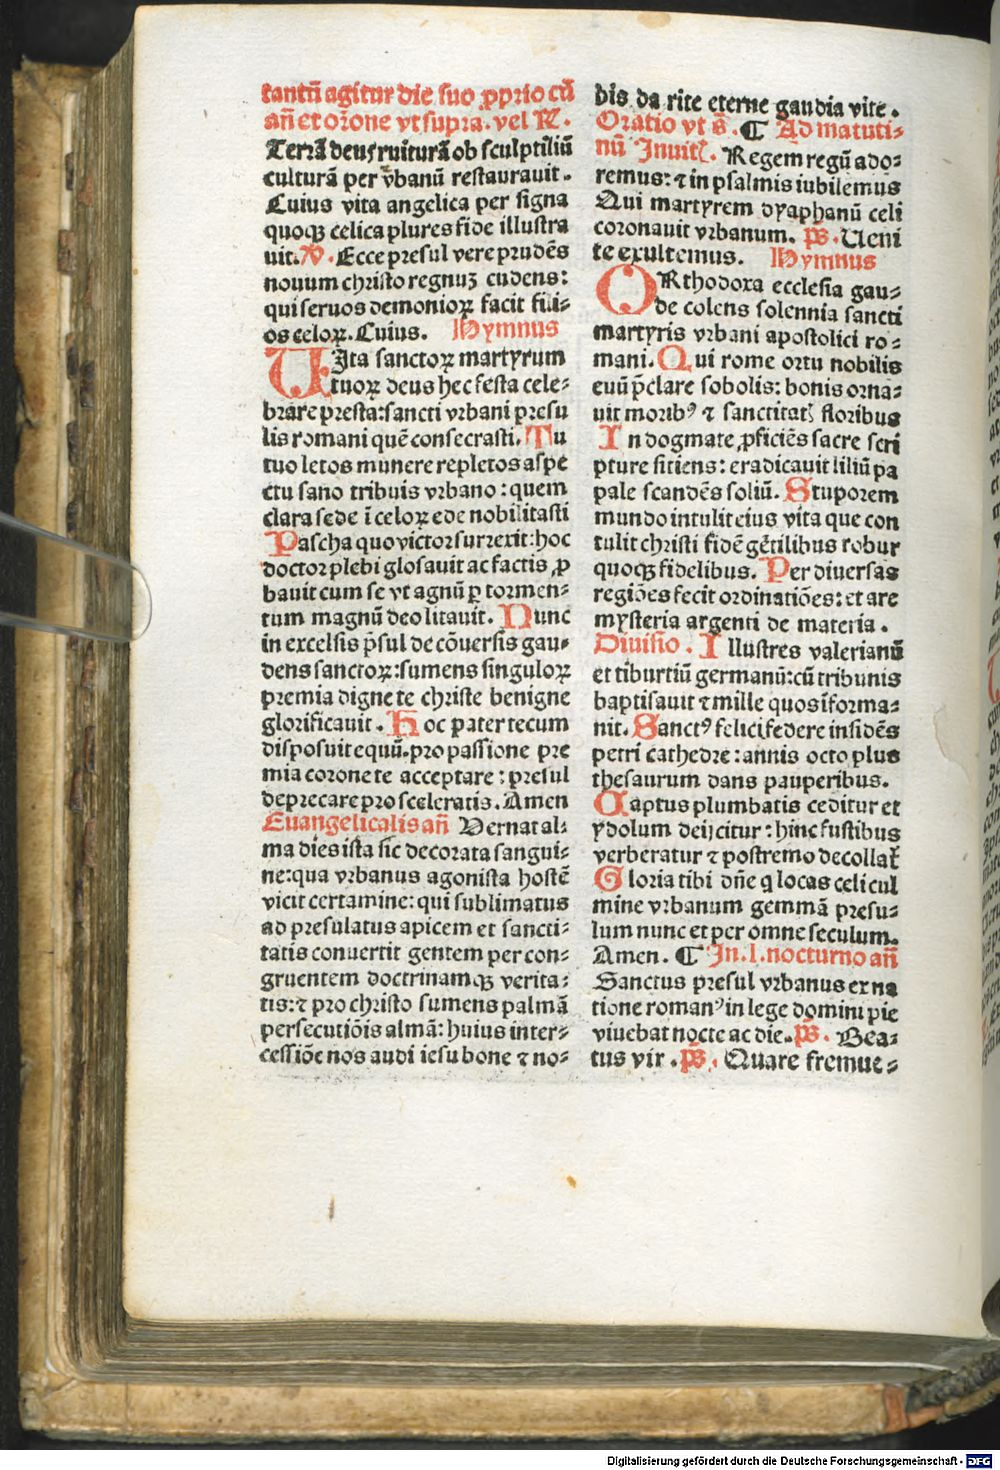 tantū agitur die suo ꝓprio cū
añ et or̄one vt supra. vel R̸.
Terrā deus ruiturā ob sculptiliū
culturā per vrbanū restaurauit.
Cuius vita angelica per signa
quoqꝫ celica plures fide illustra
uit. V̸. Ecce presul vere prudēs
nouum christo regnuꝫ cudens:
qui seruos demonioꝝ facit fili⸗
os celoꝝ. Cuius. Hymnus
UIta sanctoꝝ martyrum
tuoꝝ deus hec festa cele⸗
brare presta: sancti vrbani presu
lis romani quē consecrasti. Tu
tuo letos munere repletos aspe
ctu sano tribuis vrbano: quem
clara sede ī celoꝝ ede nobilitasti
Pascha quo victor surrexit: hoc
doctor plebi glosauit ac factis ꝓ
bauit cum se vt agnū ꝑ tormen⸗
tum magnū deo litauit. Nunc
in excelsis p̄sul de cōuersis gau⸗
dens sanctoꝝ: sumens singuloꝝ
premia digne te christe benigne
glorificauit. Hoc pater tecum
disposuit equū. pro passione pre
mia corone te acceptare: presul
deprecare pro sceleratis. Amen
Euangelicalis añ Vernat al⸗
ma dies ista sic decorata sangui⸗
ne: qua vrbanus agonista hostē
vicit certamine: qui sublimatus
ad presulatus apicem et sancti⸗
tatis conuertit gentem per con⸗
gruentem doctrinamqꝫ verita⸗
tis: ⁊ pro christo sumens palmā
persecutiōis almā: huius inter⸗
cessiōe nos audi iesu bone ⁊ no⸗
bis da rite eterne gaudia vite.
Oratio vt s̄. ¶ Ad matuti⸗
nū Inuit. Regem regū ado⸗
remus: ⁊ in psalmis iubilemus
Qui martyrem dyaphanū celi
coronauit vrbanum. ps̄. Ueni
te exultemus. Hymnus
ORthodoxa ecclesia gau⸗
de colens solennia sancti
martyris vrbani apostolici ro⸗
mani. Qui rome ortu nobilis
euū p̄clare sobolis: bonis orna⸗
uit moribꝰ ⁊ sanctitatꝭ floribus
In dogmate ꝓficiēs sacre scri
pture sitiens: eradicauit liliū pa
pale scandēs soliū. Stuporem
mundo intulit eius vita que con
tulit christi fidē gētilibus robur
quoqꝫ fidelibus. Per diuersas
regiōes fecit ordinatiōes: et are
mysteria argenti de materia.
Diuisio. Illustres valerianū
et tiburtiū germanū: cū tribunis
baptisauit ⁊ mille quos īforma⸗
nit. Sanctꝰ felici federe insidēs
petri cathedre: annis octo plus
thesaurum dans pauperibus.
Captus plumbatis ceditur et
ydolum deijcitur: hinc fustibus
verberatur ⁊ postremo decollat̄
Gloria tibi dñe q locas celi cul
mine vrbanum gemmā presu⸗
lum nunc et per omne seculum.
Amen. ¶ In .I. nocturno añ
Sanctus presul vrbanus ex na
tione romanꝰ in lege domini pie
viuebat nocte ac die. ps̄. Bea⸗
tus vir. ps̄. Quare fremue⸗
Digitalisierung gefördert durch die Deutsche Forschungsgemeinschaft - DFG